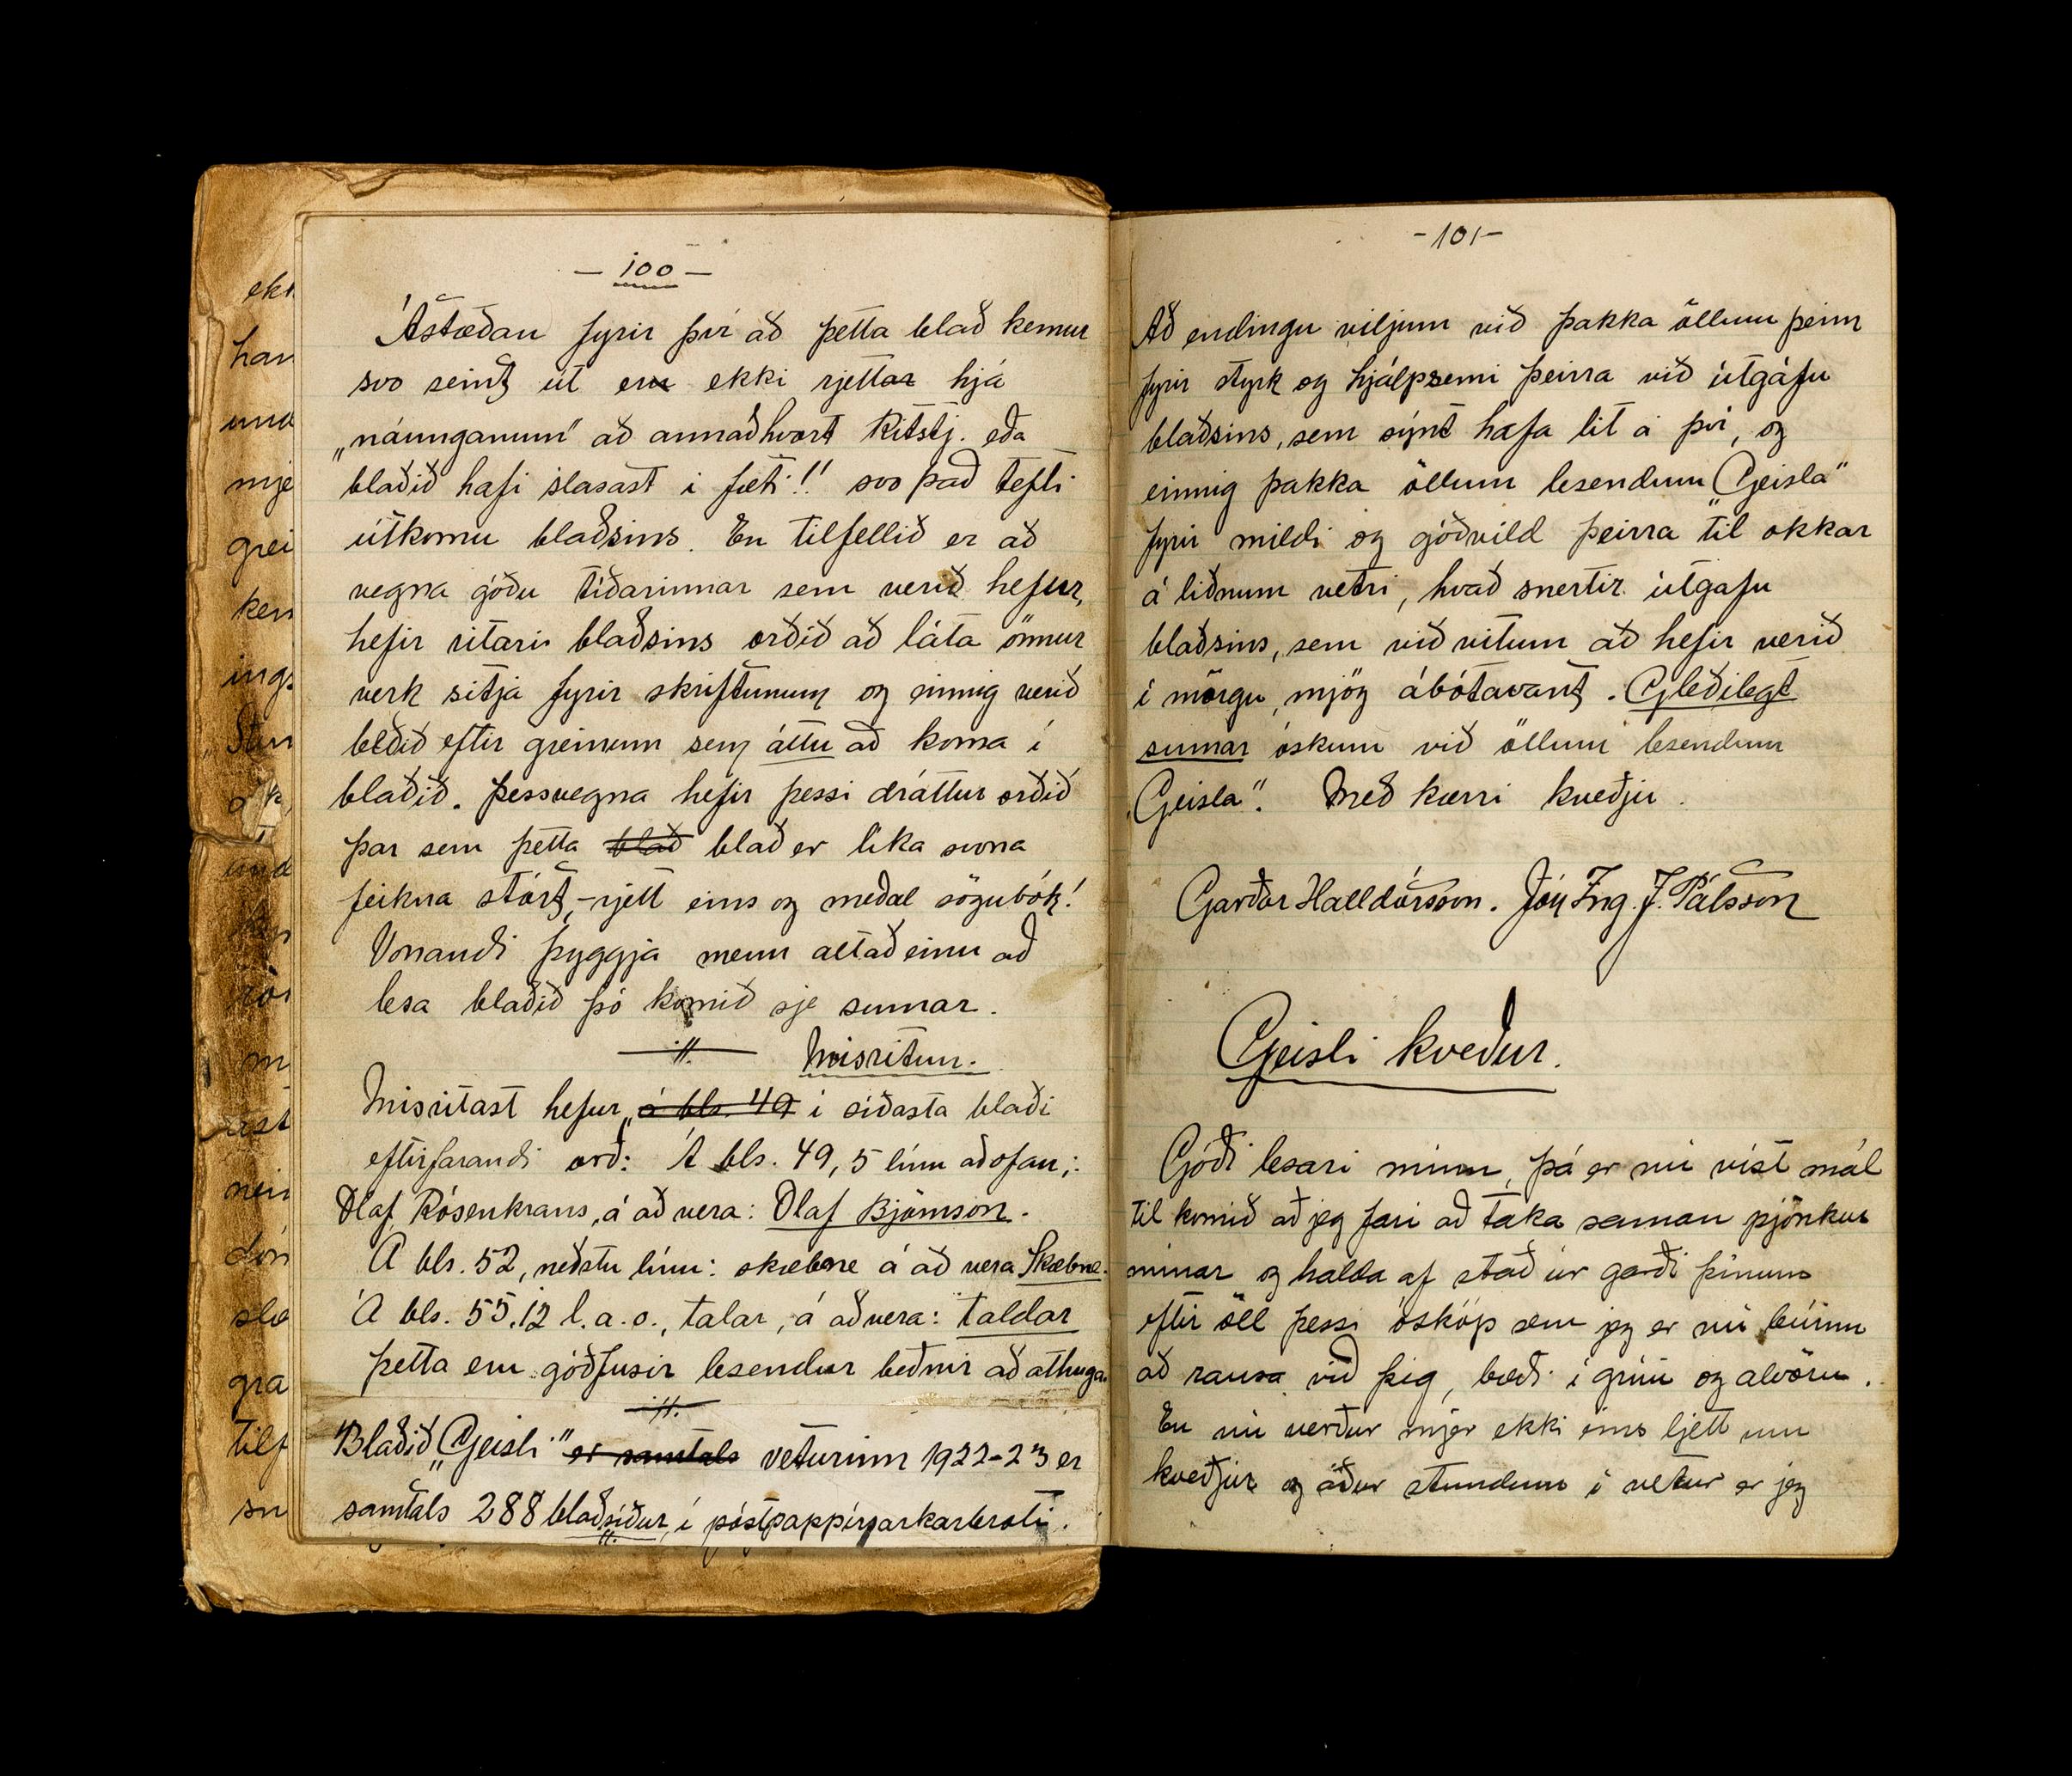 - 100 -
Ástæðan fyrir því að þetta blað kemur
svo seint út eru ekki rjettar hjá
„náunganum" að annaðhvort Ritstj. eða
blaðið hafi slasast í fæti!! svo það tefti
útkomu blaðsins. En tilfellið er að
vegna góðu tíðarinnar sem verið hefur,
hefir ritari blaðsins orðið að láta önnur
verk sitja fyrir skriftunum og einnig verið
beðið eftir greinum sem áttu að koma í
blaðið. Þessvegna hefir þessi dráttur orðið
þar sem þetta blað blað er líka svona
feikna stórt, - rjett eins og meðal sögubók!
Vonandi þyggja menn altað einu að
lesa blaðið þó komið sje sumar.
Misritun.
Misritast hefur „á bls. 49 í síðasta blaði
eftirfarandi orð: Á bls. 49, 5 línu aðofan,:
Olaf Rósenkrans, á að vera: Olaf Björnson.
Á bls. 52, neðstu línu: skæbne á að vera Skæbne.
Á bls. 55. 12 l. a. o., talar, á aðvera: taldar
Þetta eru góðfusir lesendur beðnir að athuga.
Blaðið „Geisli" er samtals veturinn 1922-23 er
samtals 288 blaðsíður, í póstpappírsarkarbroti.
- 101 -
Að endingu viljum við þakka öllum þeim
fyrir styrk og hjálpsemi þeirra við útgáfu
blaðsins, sem sýnt hafa lit á því, og
einnig þakka öllum lesendum „Geisla"
fyrir mildi og góðvild þeirra til okkar
á liðnum vetri, hvað snertir útgafu
blaðsins, sem við vitum að hefir verið
í mörgu, mjög ábótavant. Gleðilegt
sumar óskum við öllum lesendum
„Geisla". Með kærri kveðju.
Garðar Halldórsson. Jón Ing. J. Pálsson
Geisli kveður.
Góði lesari minn, þá er nú víst mál
til komið að jeg fari að taka saman pjönkur
mínar og halda af stað úr garði þínum
eftir öll þessi ósköp sem jeg er nú búinn
að rausa við þig, bæði í gríni og alvöru.
En nú verður mjer ekki eins ljett um
kveðjur og áður stundum í vetur er jeg
ekk
han
und
mje
grei
ken
ings
und
m
neis
slo
gra
tilf
sn